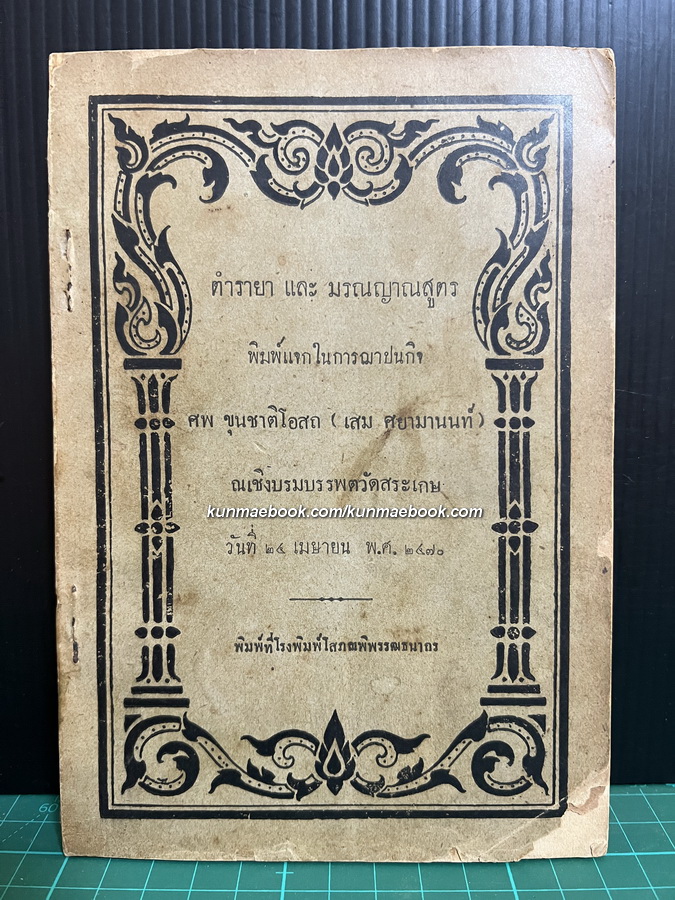 ตำรายา และ มรณญาณสูตร
พิมพ์แจกในการฌาปนกิจ
ศพ ขุนชาติโอสถ ( เสม ศยามานนท์ )
ณเชิงบรมบรรพตวัดสระเกษ
kunmaebook.com/kunmaebook.com
วันที่ ๒๔ เมษายน พ.ศ. ๒๔๗๐
พิมพ์ที่โรงพิมพ์โสภณพิพรรฒธนากร
60